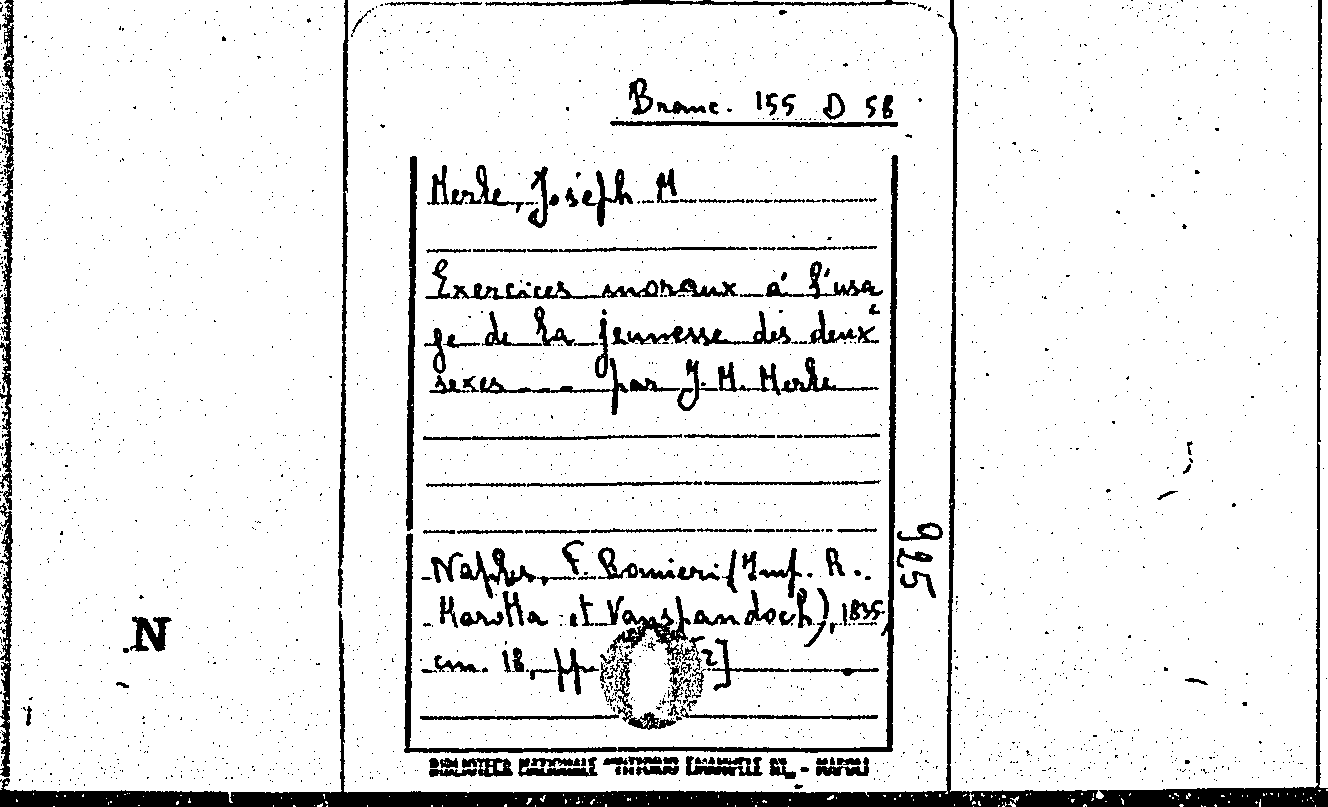 Branc. 155 D 58
Merle, Joseph M
Exercices moraux à l'usa
ge de la jeunesse des deux
sexes --- par J. M. Merle
Naples, F. Romieri (Imp. R.
Marotta et Vanspandoch), 1835,
cm. 18, pp 2]
925
N
BIBLIOTECA NAZIONALE "VITTORIO EMANUELE III" - NAPOLI